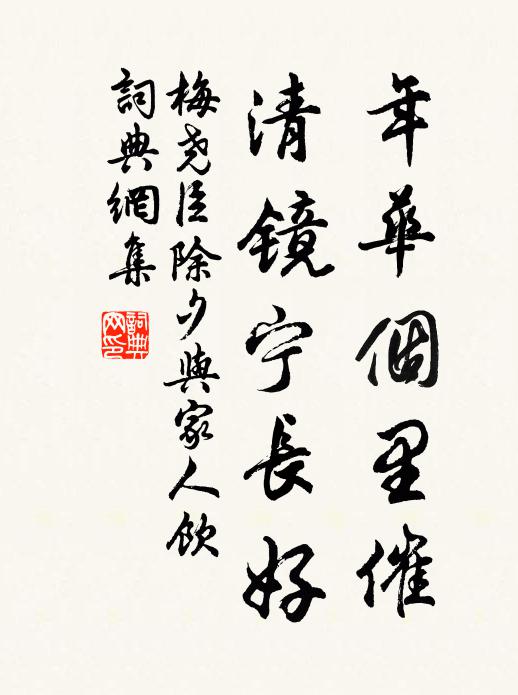 年華個里催
清鏡宁長好
梅尧臣除夕與家人飲
詞典網集
詞典网印